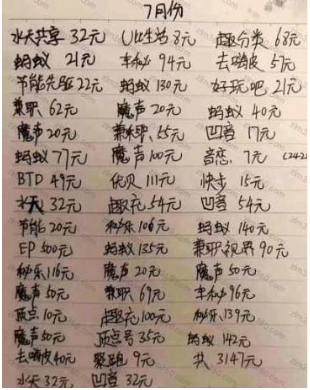 7月份
水天共享 32元 U比生活 8元 趣分类 68元
蚂蚁 21元 丰秒 94元 去嗨皮 57元
节能先驱 22元 蚂蚁 130元 好玩吧 21元
兼职 62元 魔声 20元 蚂蚁 40元
魔声 20元 兼职 55元 凹音 17元
蚂蚁 77元 魔声 100元 音恋 7元
BTD 49元 优贝 111元 快步 15元
水天 32元 趣充 54元 凹音 54元
节能 20元 秒乐 106元 蚂蚁 140元
EP 500元 蚂蚁 135元 兼职视界 90元
秒乐 116元 魔声 20元 魔声 50元
魔声 50元 兼职 69元 丰秒 96元
顶点 10元 趣充 100元 秒乐 139元
魔声 50元 顶点号 35元 蚂蚁 142元
去嗨皮 40元 聚跑 9元 共 3147元
水天 32元 凹音 32元